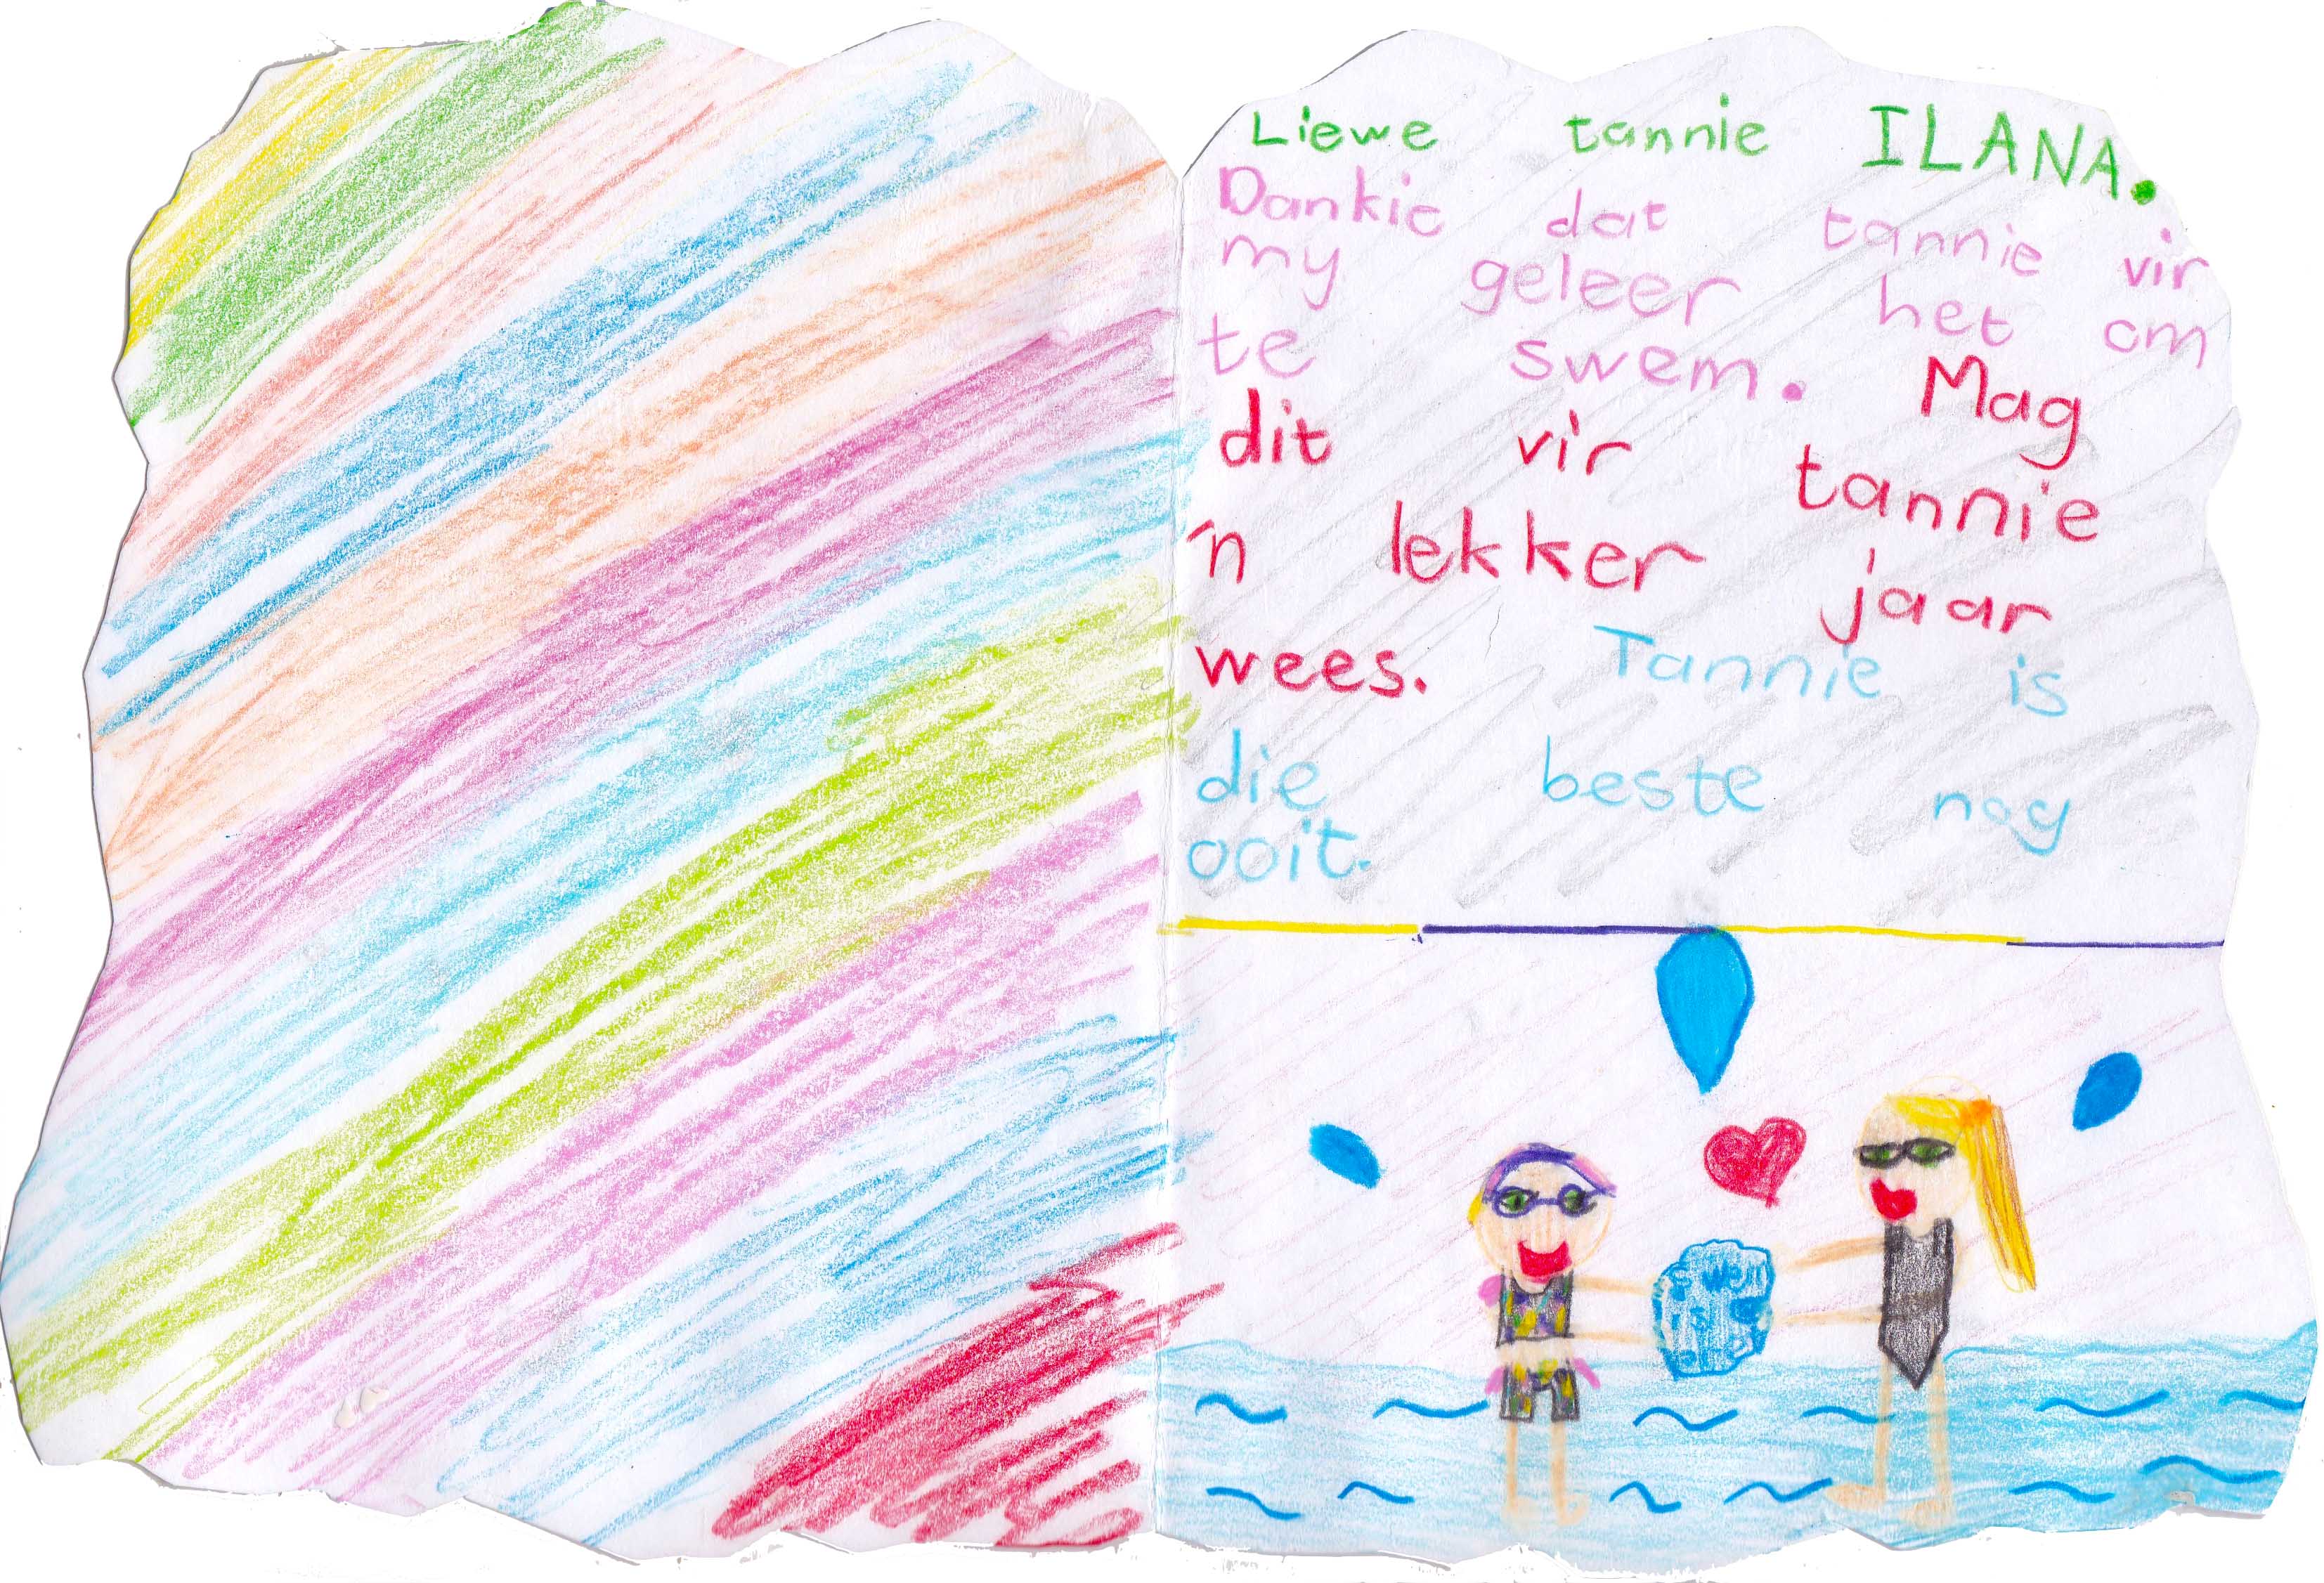 Liewe tannie ILANA.
Dankie dat tannie vir
my geleer het om
te swem. Mag
dit vir tannie
'n lekker jaar
wees. Tannie is
die beste nog
ooit.